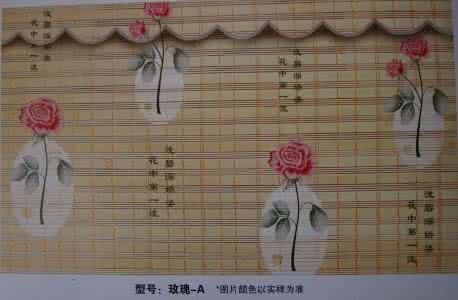 浅碧深娇姿
花中第一流
浅碧深娇姿
花中第一流
浅碧深娇姿
花中第一流
浅碧深娇姿
花中第一流
型号：玫瑰-A *图片颜色以实样为准